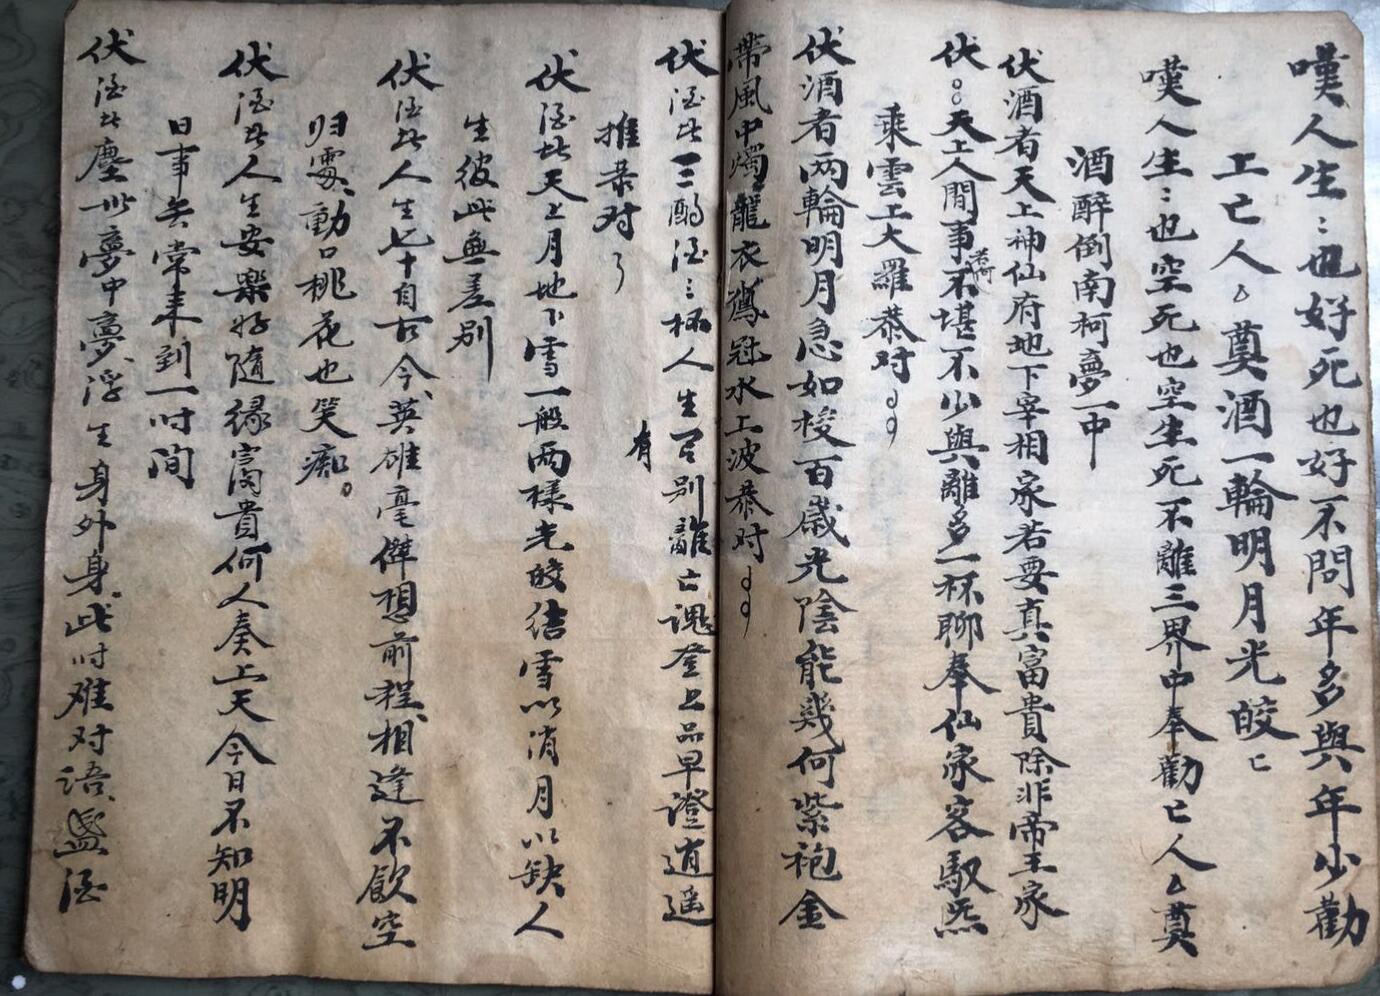 嘆人生〻也好死也好不問年多與年少勸
上亡人厶奠酒一輪明月光皎匕
嘆人生〻也空死也空生死不離三界中奉勸亡人厶奠
酒醉倒南柯夢一中
伏酒者天上神仙府地下宰相家若要真富貴除非帝王家
伏〻天上人間事不堪不少與離多一杯聊奉仙家客馭炁
乘雲上大羅恭对
伏酒者两輪明月急如梭百歲光陰能幾何紫袍金
帶風中燭龍衣鳳冠水上波恭对
伏酒此三酌酒三杯人生召别離亡魂登上品早證逍遥
有
推恭对
伏酒此天上月地下雪一般両樣光皎结雪以消月以缺人
生彼此無差别
伏酒此人生七十自古今英雄毫傑想前程相逢不飲空
归去動口桃花也笑痴
伏酒此人生安樂好隨緣富貴何人奏上天今日不知明
日事无常来到一吋间
伏酒此塵世夢中夢浮生身外身此吋难对语盞酒